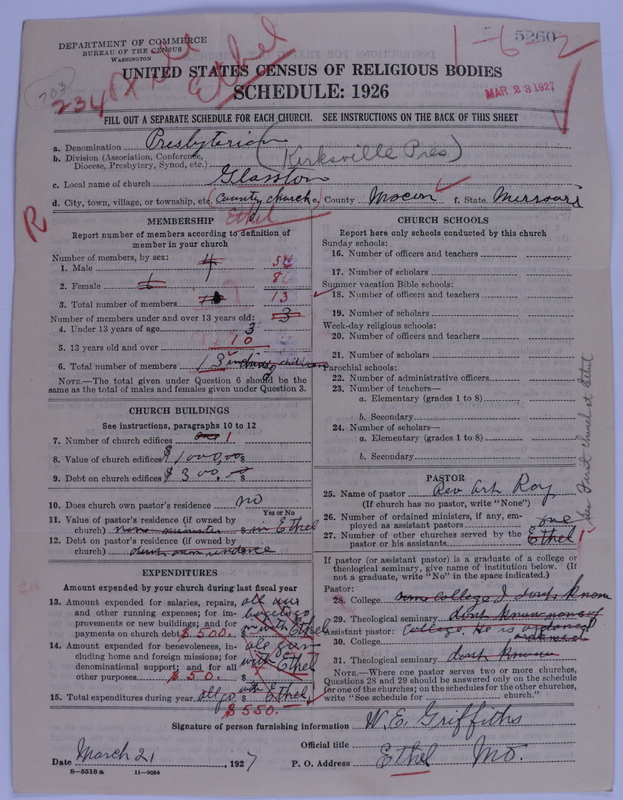 DEPARTMENT OF COMMERCE
BUREAU OF THE CENSUS
WASHINGTON
203
234
Ethel
1-6
5260
MAR 23 1927
UNITED STATES CENSUS OF RELIGIOUS BODIES
SCHEDULE: 1926
FILL OUT A SEPARATE SCHEDULE FOR EACH CHURCH. SEE INSTRUCTIONS ON THE BACK OF THIS SHEET
a. Denomination Presbyterian
b. Division (Association, Conference, Diocese, Presbytery, Synod, etc.) (Kirksville Pres)
c. Local name of church Glasston
d. City, town, village, or township, etc. County church e. County Macon f. State Missouri
Ethel
R
MEMBERSHIP
Report number of members according to definition of
member in your church
Number of members, by sex:
1. Male 4 5
2. Female 6 8
3. Total number of members 13
Number of members under and over 13 years old: 3
4. Under 13 years of age 3
5. 13 years old and over 10
6. Total number of members 13 children
NOTE.—The total given under Question 6 should be the
same as the total of males and females given under Question 3.
CHURCH BUILDINGS
See instructions, paragraphs 10 to 12
7. Number of church edifices one 1
8. Value of church edifices $1000,00
9. Debt on church edifices $300.00
10. Does church own pastor's residence? no
Yes or No
11. Value of pastor's residence (if owned by
church) Ethel
12. Debt on pastor's residence (if owned by
church)
EXPENDITURES
Amount expended by your church during last fiscal year
13. Amount expended for salaries, repairs,
and other running expenses; for im-
provements or new buildings; and for
payments on church debt $500. with Ethel
14. Amount expended for benevolences, in-
cluding home and foreign missions; for
denominational support; and for all
other purposes $50. with Ethel
15. Total expenditures during year $ with Ethel
$550.
CHURCH SCHOOLS
Report here only schools conducted by this church
Sunday schools:
16. Number of officers and teachers
17. Number of scholars
Summer vacation Bible schools:
18. Number of officers and teachers
19. Number of scholars
Week-day religious schools:
20. Number of officers and teachers
21. Number of scholars
Parochial schools:
22. Number of administrative officers
23. Number of teachers—
a. Elementary (grades 1 to 8)
b. Secondary
24. Number of scholars—
a. Elementary (grades 1 to 8)
b. Secondary
See First Church at Ethel
PASTOR
25. Name of pastor Rev Art Roy
(If church has no pastor, write "None")
26. Number of ordained ministers, if any, em-
ployed as assistant pastors one
27. Number of other churches served by the
pastor or his assistants Ethel 1
If pastor (or assistant pastor) is a graduate of a college or
theological seminary, give name of institution below. (If
not a graduate, write "No" in the space indicated.)
Pastor:
28. College some College I dont know
29. Theological seminary dont know name of
Assistant pastor: College. He is ordained
30. College
31. Theological seminary dont know
NOTE.—Where one pastor serves two or more churches,
Questions 28 and 29 should be answered only on the schedule
for one of the churches; on the schedules for the other churches,
write "See schedule for church."
Signature of person furnishing information W. E. Griffiths
Official title
Date March 21, 1927 P. O. Address Ethel Mo.
8-5518 a 11-9084